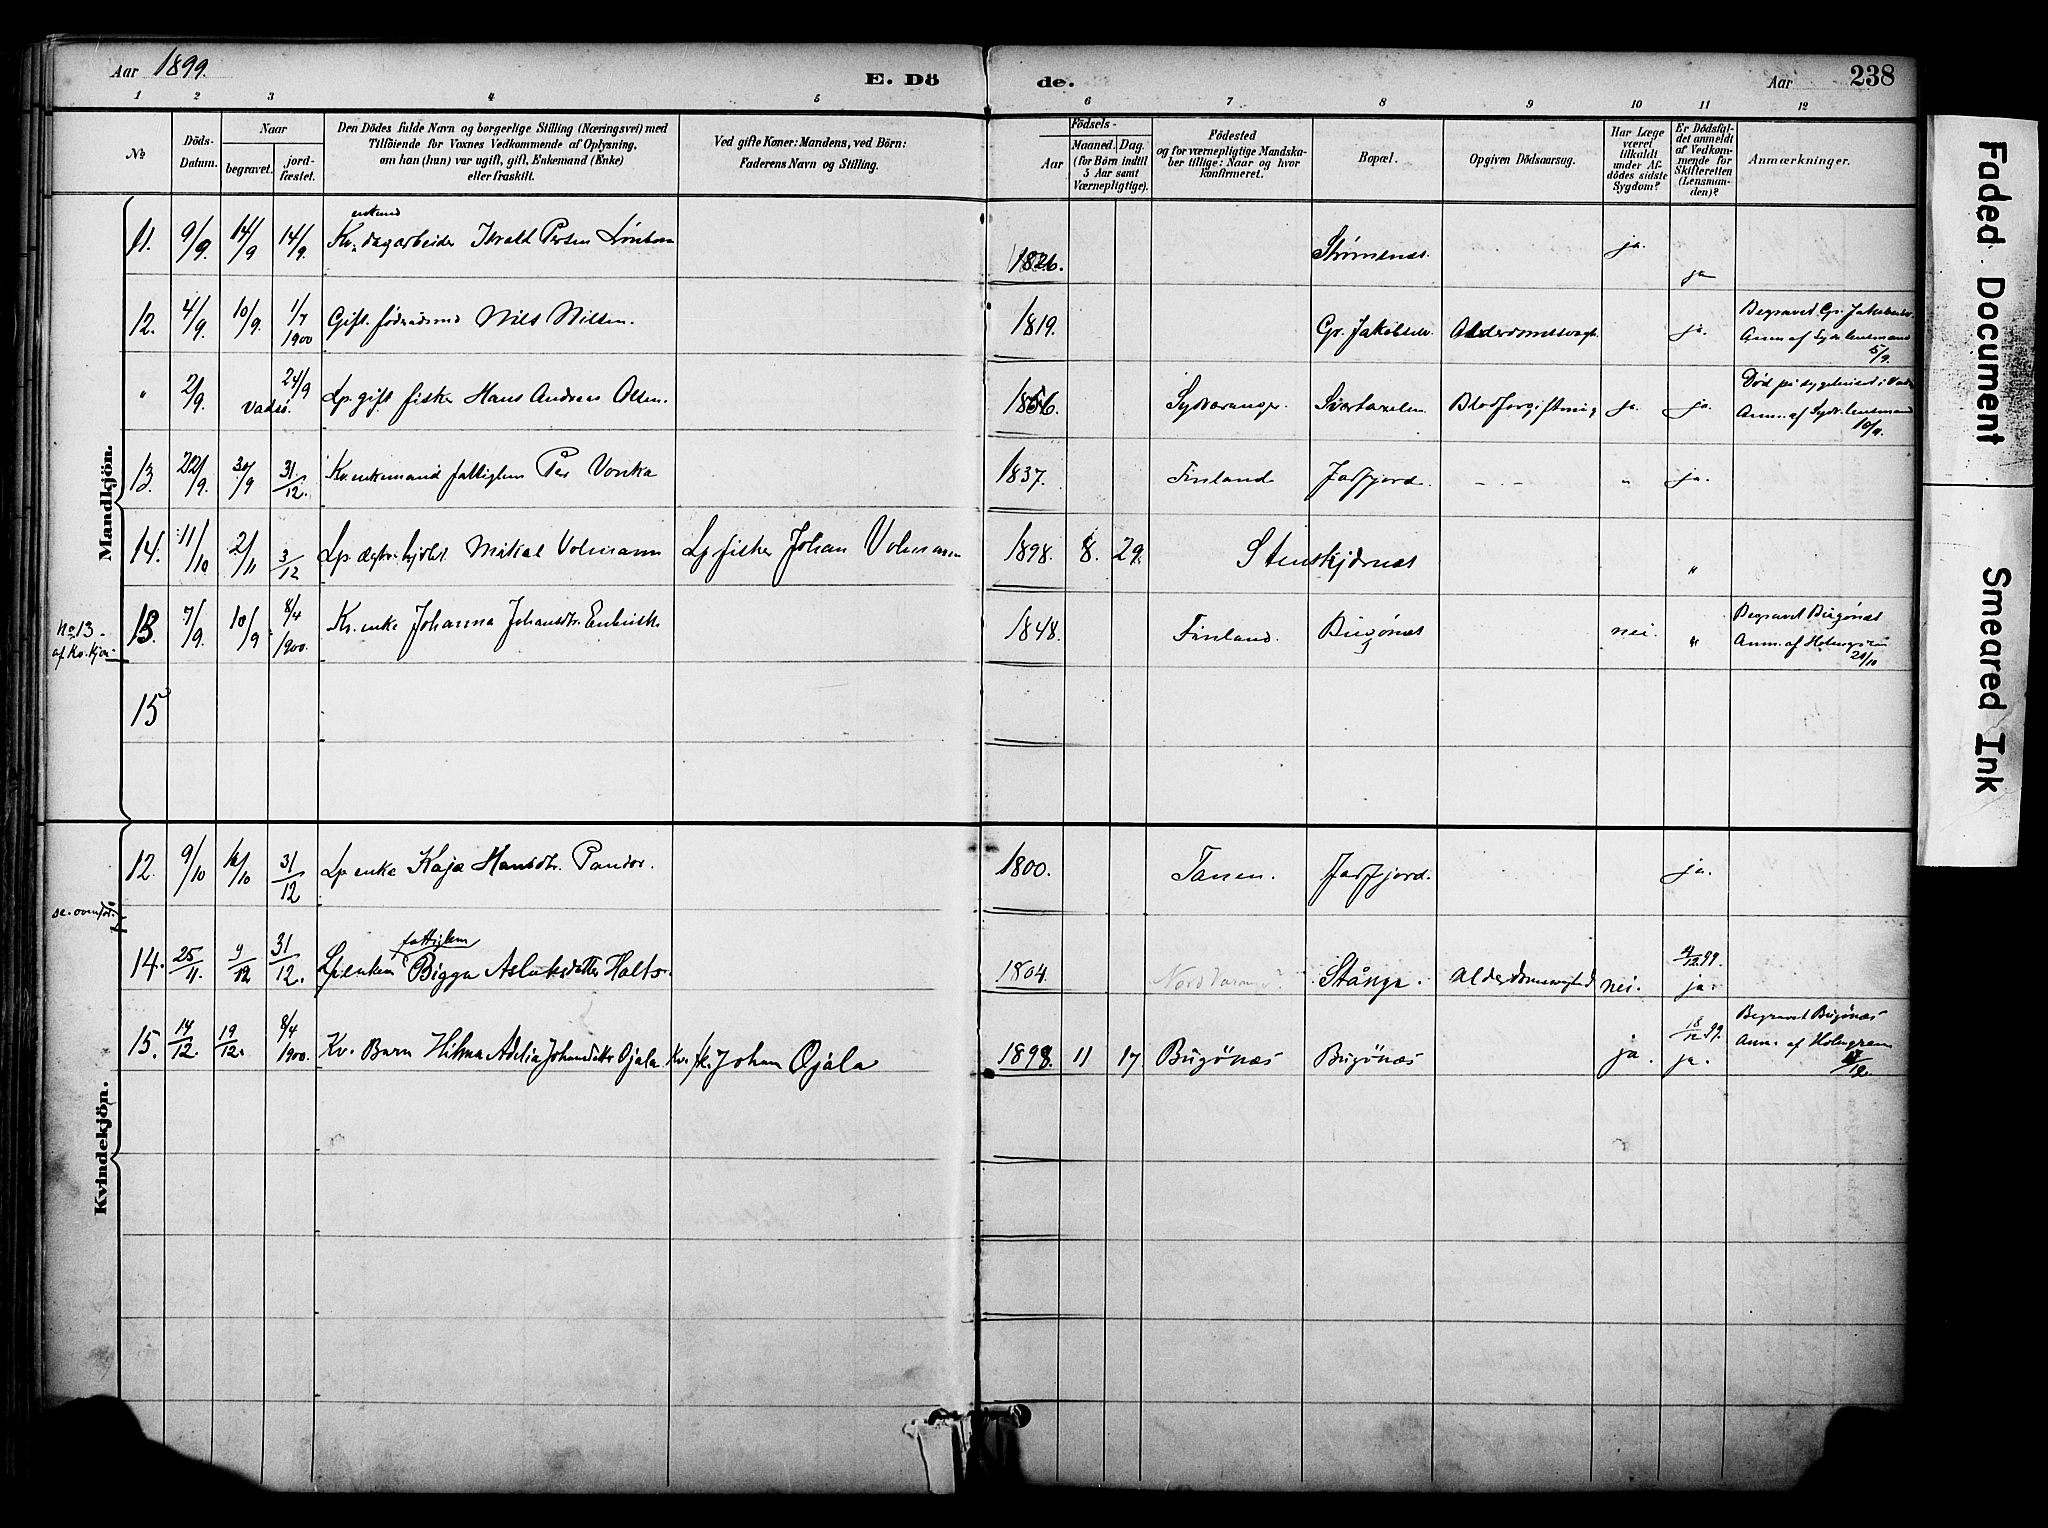 Aar 1899.
E. Döde.
Aar
238
1 2 3 4 5 6 7 8 9 10 11 12
No
Döds-Datum.
Naar
begravet.
jord-fæstet.
Den Dödes fulde Navn og borgerlige Stilling (Næringsvei) med
Tilföiende for Voxnes Vedkommende af Oplysning,
om han (hun) var ugift, gift, Enkemand (Enke)
eller fraskilt.
Ved gifte Koner: Mandens, ved Börn:
Faderens Navn og Stilling.
Födsels-
Aar
Maaned. Dag.
(for Börn indtil
5 Aar samt
Værnepligtige).
Födested
og for værnepligtige Mandska-
ber tillige: Naar og hvor
konfirmeret.
Bopæl.
Opgiven Dödsaarsag.
Har Læge
været
tilkaldt
under Af-
dödes sidste
Sygdom?
Er Dödsfal-
det anmeldt
af Vedkom-
mende for
Skifteretten
(Lensman-
den)?
Anmærkninger.
Mandkjön.
11. 9/9. 14/9 14/9. Kv. dagarbeider 1826. Strømenæs. ja. ja
12. 4/9. 10/9. 1/7 1900 Gift. Nils Nilsen. 1819. Gr. Jakobselv. ja. Begravet Gr. Jakobselv.
Anm. af Sydv. lensmand
5/9.
" 2/9. Vadsø. 24/9 Lp. gift fisker Hans Andreas Olsen. 1866 Sydvaranger. Blodforgiftning ja. ja. Død på sygehuset i Vadsø
Anm. af Sydv. lensmand
10/11.
13. 22/9. 30/9 31/12. Kv. enkemand fattiglem Per Vonka 1837. Finland Jarfjord. - . - " ja.
14. 11/10 2/11 3/12 Lp Mikal Volmann Lp fisker Johan Volmann 1898. 8. 29. Stenskjærnæs "
No 13
af Kv. kjøn
13. 7/9. 10/9 8/4 1900. Kv. enke Johanna Johansdtr. 1848. Finland. Bugönæs nei. " Begravet Bugönæs
Anm. af Holmgren
21/10
15
Kvindekjön.
12. 9/10 16/10 31/12 Lp enke Kaja Hansdtr. 1800. Tanen. Jarfjord. ja.
se ovenfor
14. 25/11. 9/12 31/12. Lp enken fattiglem Bigga Aslaksdatter Halts. 1804. Nordvaranger? Stånga. Alderdomssvaghed nei. 4/12 99. ja.
15. 14/12. 19/12. 8/4 1900. Kv. Barn Hilma Adelia Johansdtr Ojala. Kv. fsk. Johan Ojala 1898. 11 17. Bugönæs Bugönæs ja. 18/12 99. ja. Begravet Bugönæs
Anm. af Holmgren
Faded Document
Smeared Ink